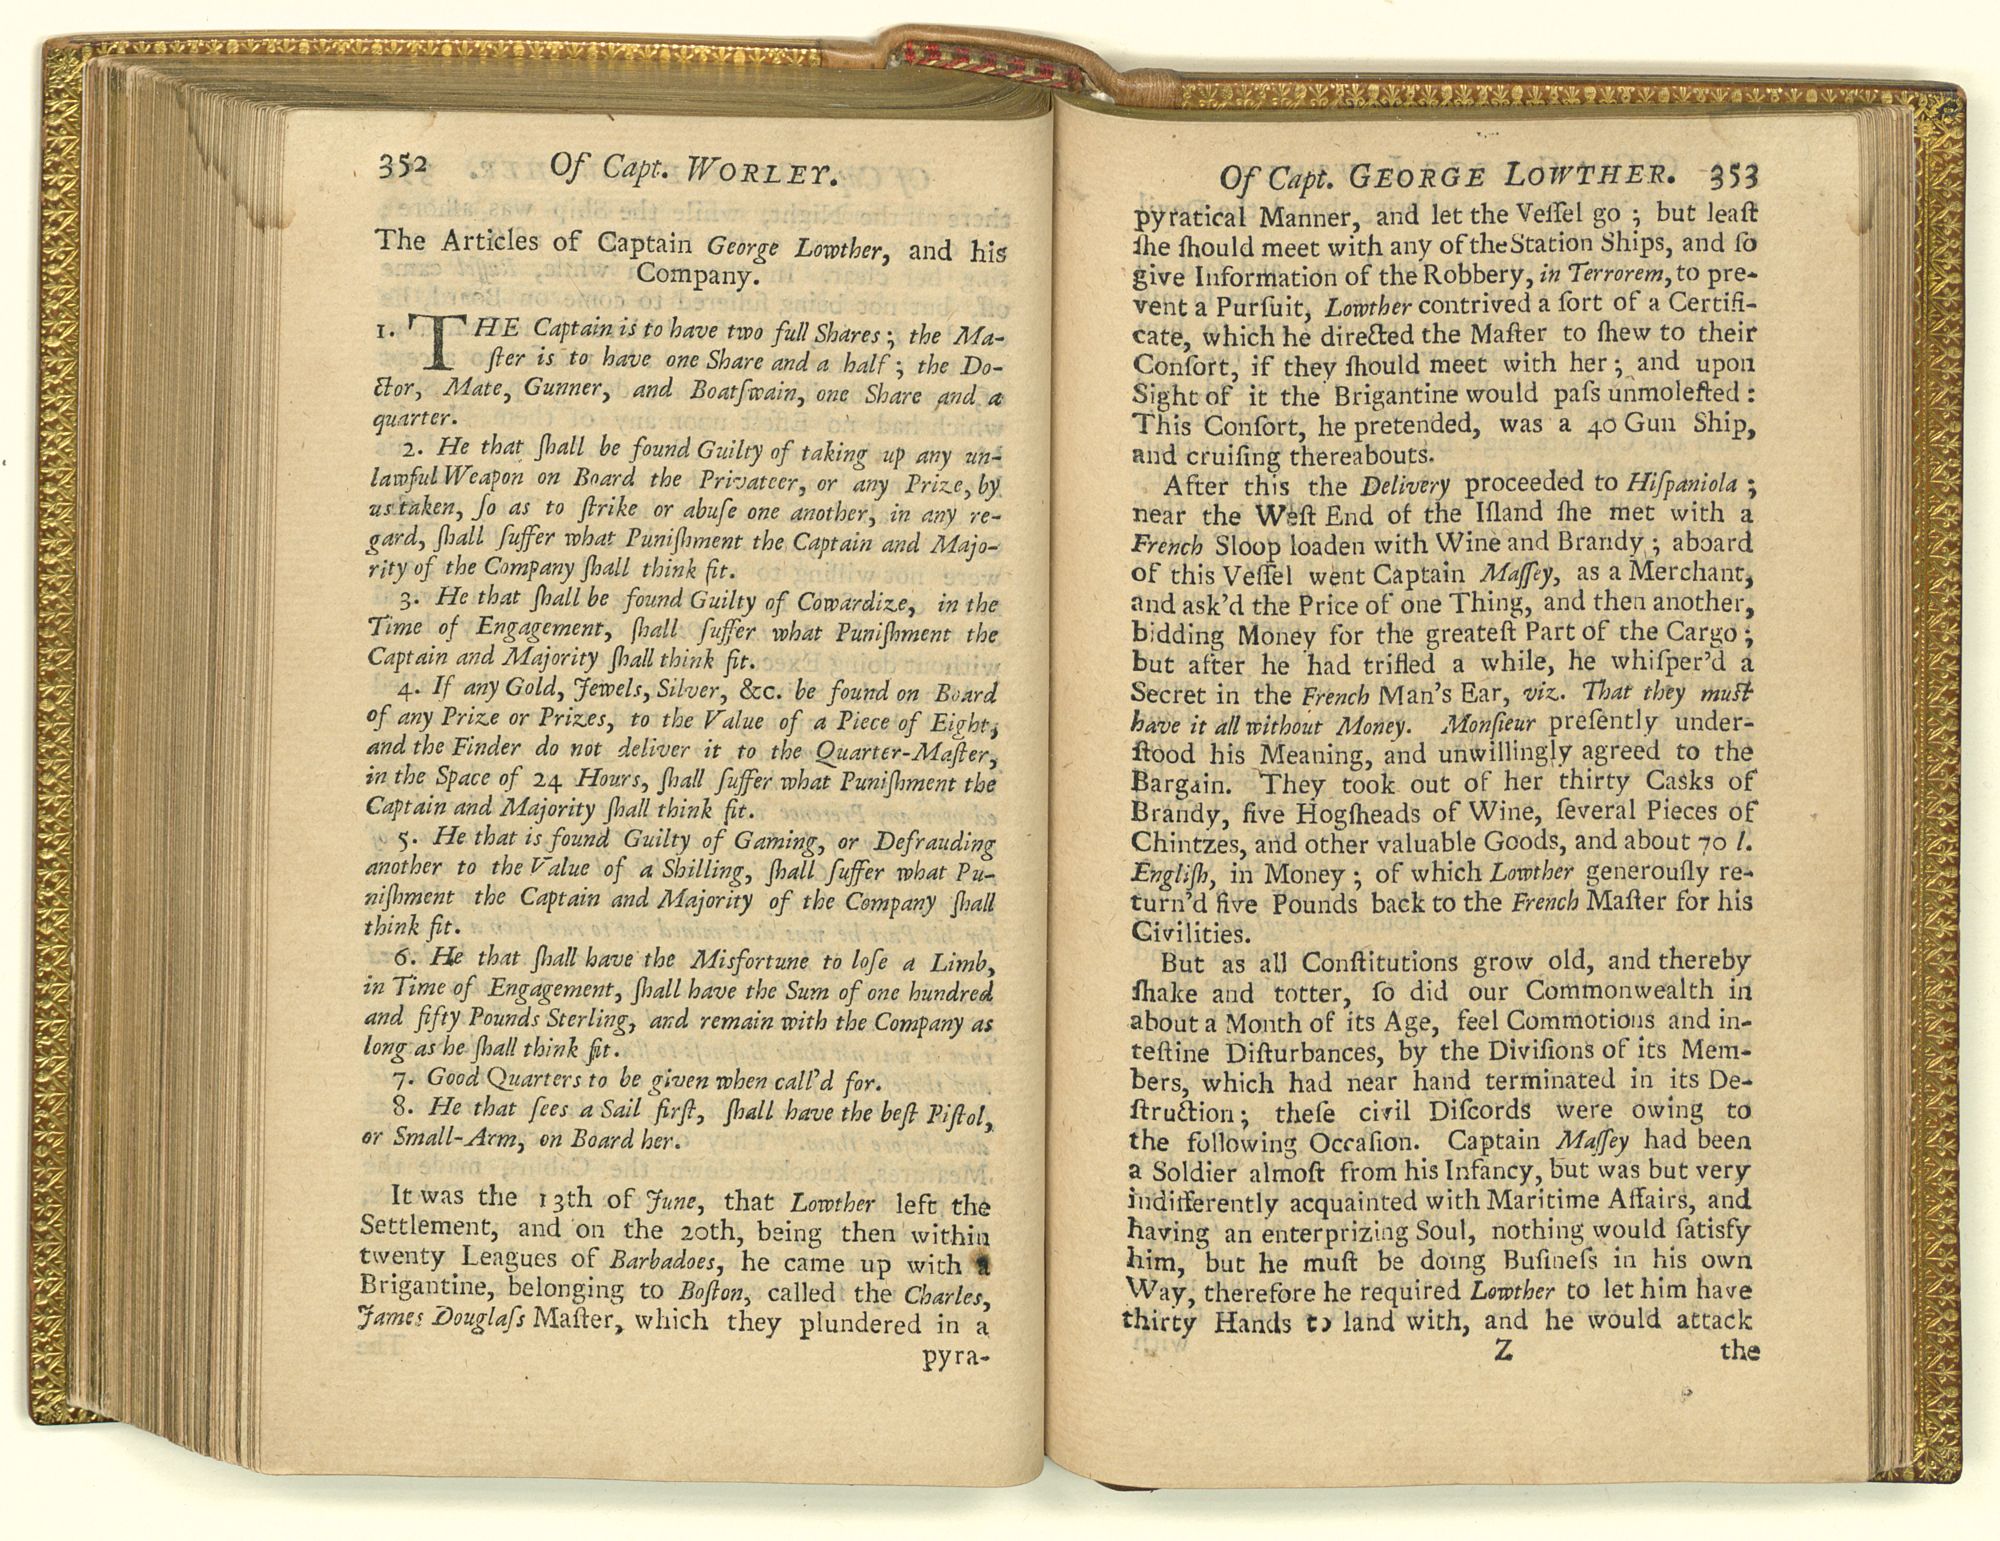 352 Of Capt. WORLEY.
The Articles of Captain George Lowther, and his
Company.
1. THE Captain is to have two full Shares; the Ma-
ſter is to have one Share and a half; the Do-
ctor, Mate, Gunner, and Boatſwain, one Share and a
quarter.
2. He that ſhall be found Guilty of taking up any un-
lawful Weapon on Board the Privateer, or any Prize, by
us taken, ſo as to ſtrike or abuſe one another, in any re-
gard, ſhall ſuffer what Puniſhment the Captain and Majo-
rity of the Company ſhall think fit.
3. He that ſhall be found Guilty of Cowardize, in the
Time of Engagement, ſhall ſuffer what Puniſhment the
Captain and Majority ſhall think fit.
4. If any Gold, Jewels, Silver, &c. be found on Board
of any Prize or Prizes, to the Value of a Piece of Eight,
and the Finder do not deliver it to the Quarter-Maſter,
in the Space of 24 Hours, ſhall ſuffer what Puniſhment the
Captain and Majority ſhall think fit.
5. He that is found Guilty of Gaming, or Defrauding
another to the Value of a Shilling, ſhall ſuffer what Pu-
niſhment the Captain and Majority of the Company ſhall
think fit.
6. He that ſhall have the Misfortune to loſe a Limb,
in Time of Engagement, ſhall have the Sum of one hundred
and fifty Pounds Sterling, and remain with the Company as
long as he ſhall think fit.
7. Good Quarters to be given when call'd for.
8. He that ſees a Sail firſt, ſhall have the beſt Piſtol,
or Small-Arm, on Board her.
It was the 13th of June, that Lowther left the
Settlement, and on the 20th, being then within
twenty Leagues of Barbadoes, he came up with a
Brigantine, belonging to Boſton, called the Charles,
James Douglaſs Maſter, which they plundered in a
pyra-
Of Capt. GEORGE LOWTHER. 353
pyratical Manner, and let the Veſſel go; but leaſt
ſhe ſhould meet with any of the Station Ships, and ſo
give Information of the Robbery, in Terrorem, to pre-
vent a Purſuit, Lowther contrived a ſort of a Certifi-
cate, which he directed the Maſter to ſhew to their
Conſort, if they ſhould meet with her; and upon
Sight of it the Brigantine would paſs unmoleſted:
This Conſort, he pretended, was a 40 Gun Ship,
and cruiſing thereabouts.
After this the Delivery proceeded to Hiſpaniola;
near the Weſt End of the Iſland ſhe met with a
French Sloop loaden with Wine and Brandy; aboard
of this Veſſel went Captain Maſſey, as a Merchant,
and ask'd the Price of one Thing, and then another,
bidding Money for the greateſt Part of the Cargo;
but after he had trifled a while, he whiſper'd a
Secret in the French Man's Ear, viz. That they muſt
have it all without Money. Monſieur preſently under-
ſtood his Meaning, and unwillingly agreed to the
Bargain. They took out of her thirty Casks of
Brandy, five Hogſheads of Wine, ſeveral Pieces of
Chintzes, and other valuable Goods, and about 70 l.
Engliſh, in Money; of which Lowther generouſly re-
turn'd five Pounds back to the French Maſter for his
Civilities.
But as all Conſtitutions grow old, and thereby
ſhake and totter, ſo did our Commonwealth in
about a Month of its Age, feel Commotions and in-
teſtine Diſturbances, by the Diviſions of its Mem-
bers, which had near hand terminated in its De-
ſtruction; theſe civil Diſcords were owing to
the following Occaſion. Captain Maſſey had been
a Soldier almoſt from his Infancy, but was but very
indifferently acquainted with Maritime Affairs, and
having an enterprizing Soul, nothing would ſatisfy
him, but he muſt be doing Buſineſs in his own
Way, therefore he required Lowther to let him have
thirty Hands to land with, and he would attack
Z the